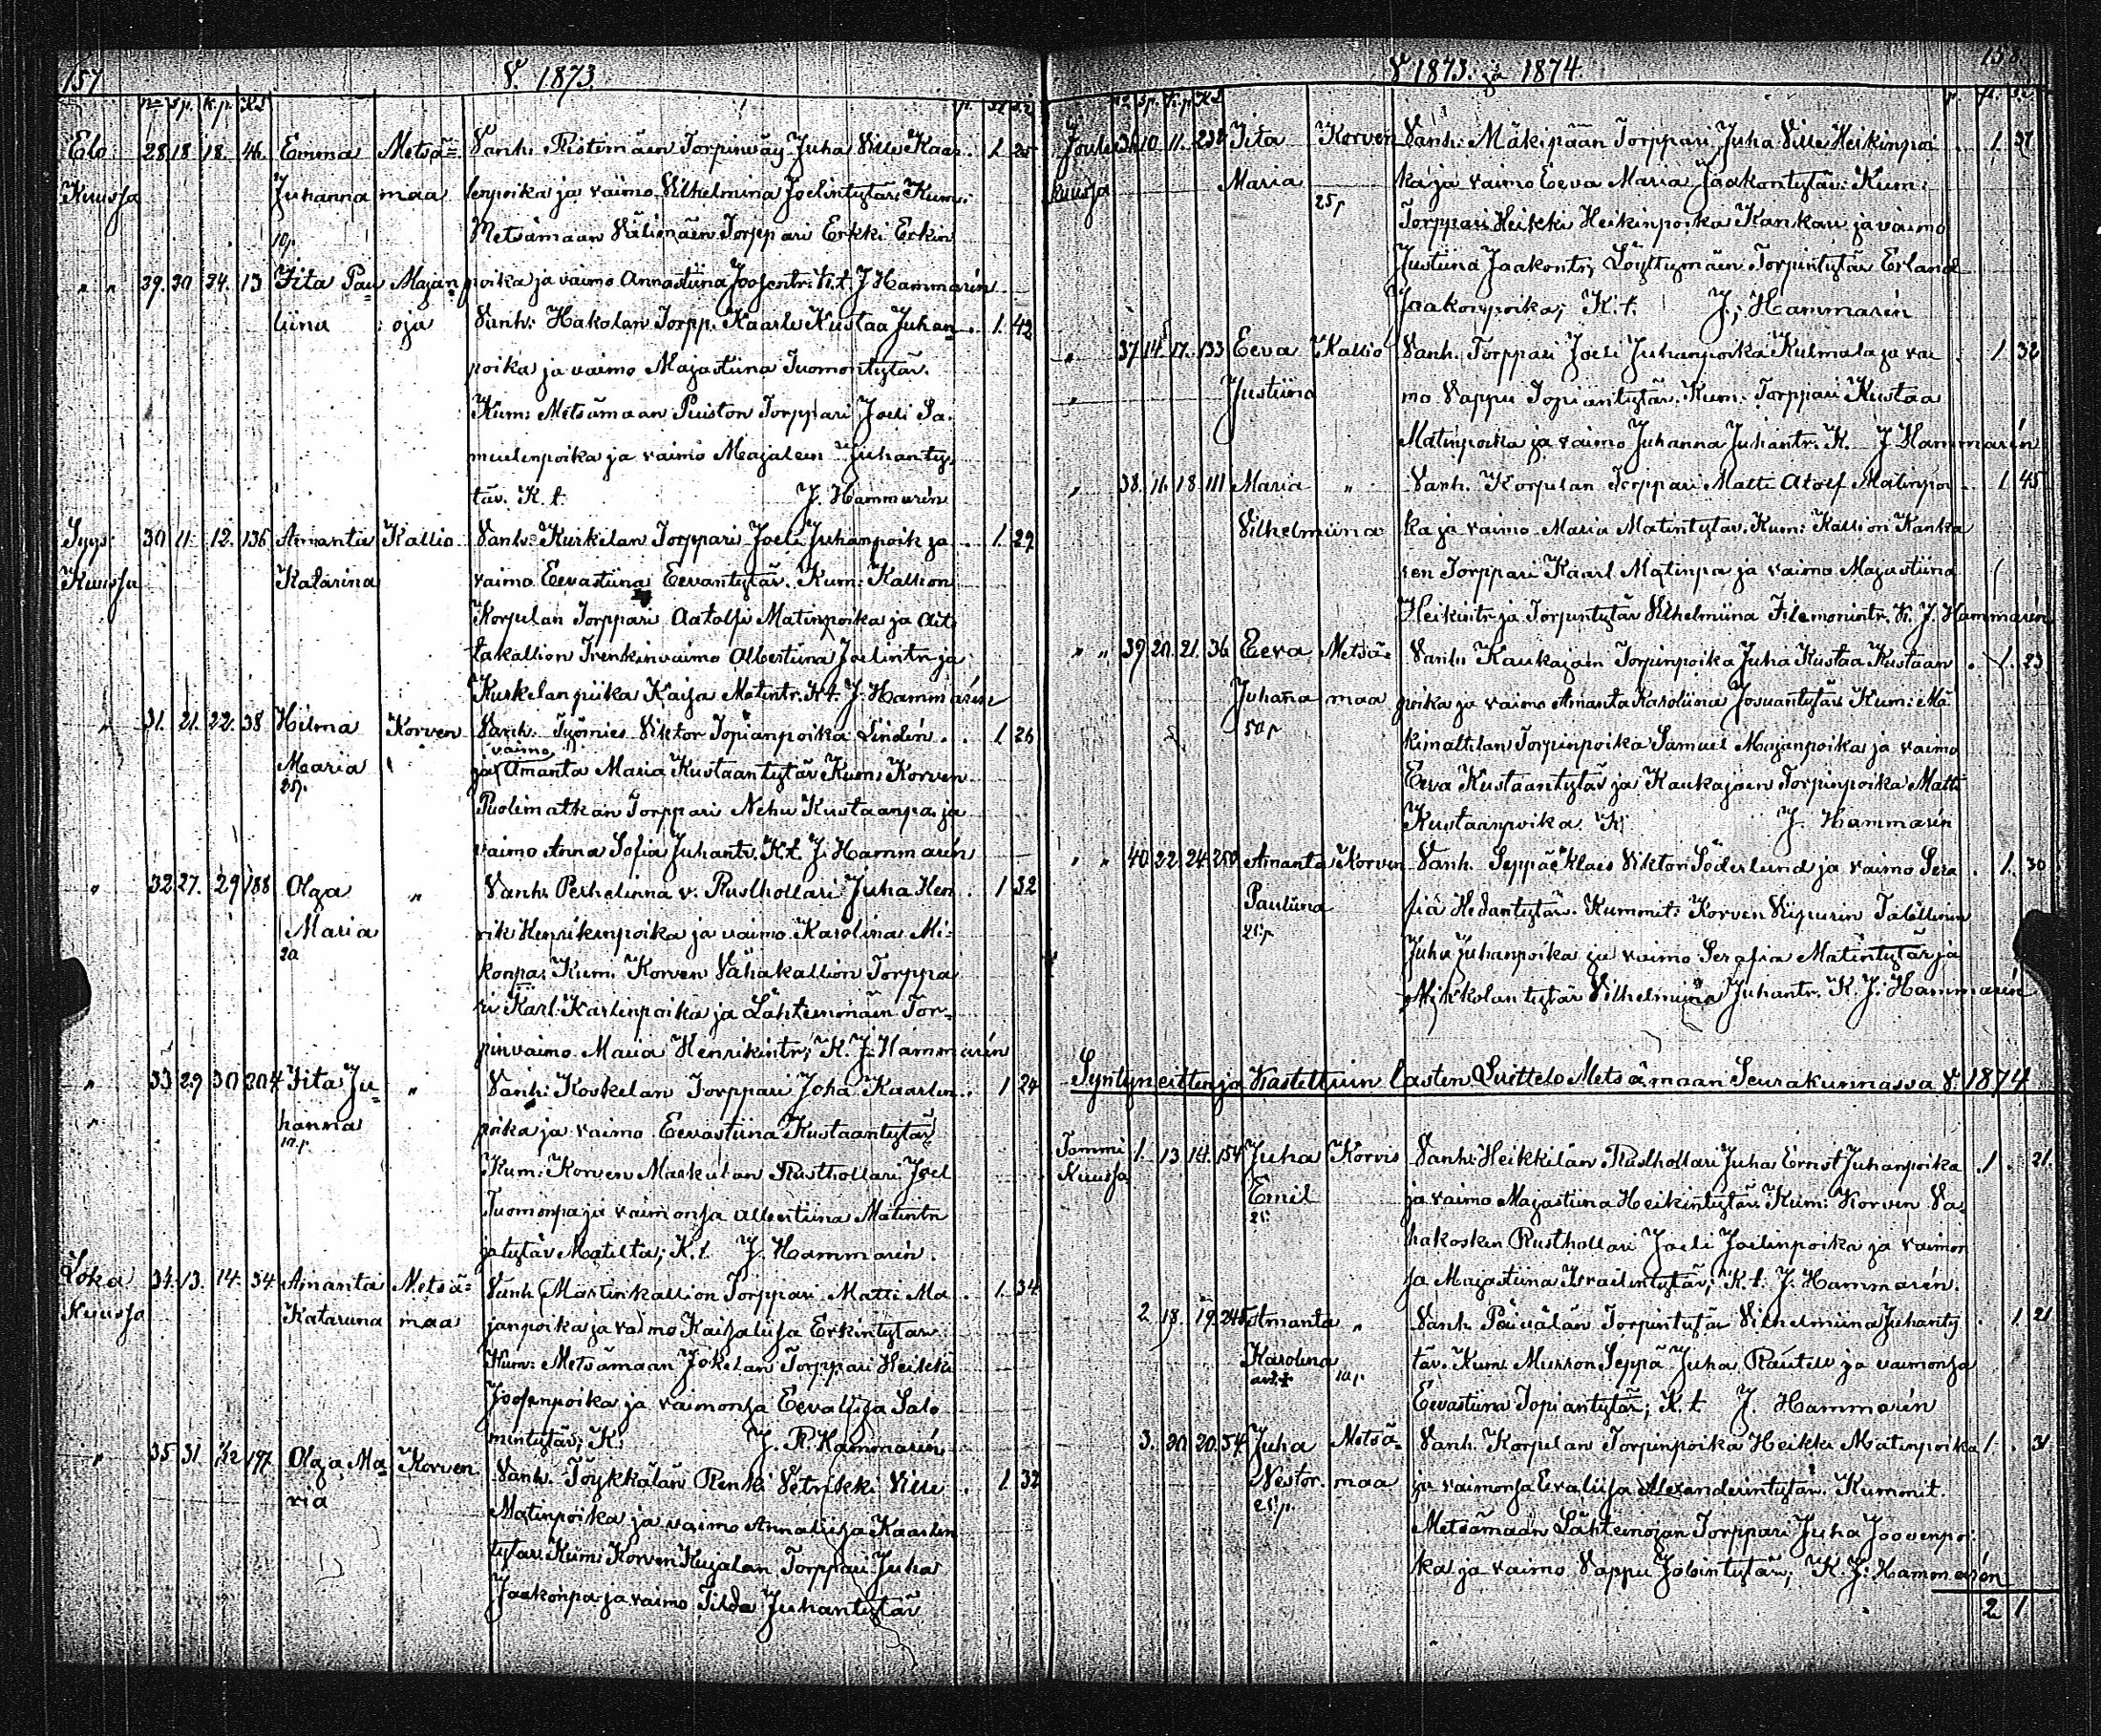 157
V. 1873.
no sp. k.p. KS p. ti. S.i
Elo 28 18 18. 46. Emma Metsä= Vanh. Ristimäen Torpinwäy Juha Ville Kaar . 1 25
Kuussa Juhanna maa lenpoika ja vaimo Vilhelmina Joelintytär. Kum:
10p Metsämaan Välimäen Torppari Erkki Erkin
" " 29. 30 24. 13 Fita Pau= Majan poika ja vaimo Annastiina Joosentr. K.t. J Hammarén
liina oja Vanh: Hakolan Torpp. Kaarle Kustaa Juhan= . 1. 42
poika ja vaimo Majastiina Tuomontytär.
Kum: Metsämaan Puiston Torppari Joeli Sa.
muelinpoika ja vaimo Majaleen Juhanty=
tär. K.t. J. Hammarén
Syys 30 11. 12. 136 Amanta Kallio Vanh: Kurkelan Torppari Joeli Juhanpoik ja . 1. 29
Kuussa Katarina vaimo Eevastiina Eevantytär. Kum: Kallion
Korpulan Torppari Aatolfi Matinpoika ja Ait
takallion Trenkinvaimo Albertiina Joelintr ja
Kurkelan piika Kaisa Matintr. K.t. J. Hammarén
" 31. 21. 22. 38 Hilma Korven Vanh. Työmies Viktor Topianpoika Lindén . . 1 26
vaimo
Maria ja Amanta Maria Kustaantytär Kum: Korven
25p. Puolimatkan Torppari Nehu Kustaanpa. ja
vaimo Anna Sofia Juhantr. K.t. J. Hammarén
" 32 27. 29 188 Olga " Vanh. Perhelinna v. Rusthollari Juha Hen . 1 32
Maria rik Henrikinpoika ja vaimo Karolina Mi=
20 konpa: Kum. Korven Vähäkallion Torppa
ri Karl Karlenpoika ja Lähteenojan Tor=
pinvaimo Maria Henrikintr; K. J. Hammarén
" 33 29 30 204 Fita Ju= " Vanh: Koskelan Torppari Joha Kaarlen . 1 24
" hanna poika ja vaimo Eevastiina Kustaantytär
10.p Kum: Korven Markulan Rusthollari Joel
Tuomonpa ja vaimonsa Albertiina Matintr
ja tytär Matilta; K.t. J. Hammarén.
Loka 34. 13. 14. 34 Amanta Metsä= Vanh. Martinkallion Torppari Matti Ma . 1. 34
Kuussa Katariina maa janpoika ja vaimo Kaisaliisa Erkintytär.
Kum: Metsämaan Jokelan Torppari Heikki
Joosenpoika ja vaimonsa Eevaliisa Salo
mintytär; K. J. R. Hammarén
" 35 31. 1/12 197 Olga Ma= Korven Vanh. Töykkälän Renki Vetrikki Ville . 1 32
ria Matinpoika ja vaimo Annaliisa Kaarlen
tytär Kum: Korven Kujalan Torppari Juha
Jaakonpa ja vaimo Tilda Juhantytär
158.
V 1873. ja 1874.
no sp. k.p KS p. ti. S.i
Joulu 36 10 11. 238 Fita Korven Vanh: Mäkipään Torppari Juha Ville Heikinpoi . 1. 37
kuussa Maria ka ja vaimo Eeva Maria Jaakontytär: Kum:
25p Torppari Heikki Heikinpoika Kankari ja vaimo
Justiina Jaakontr, Löyttymäen Torpintytär Erland
Jaakonpoika; K.t. J; Hammarén
" 37 14. 17. 133 Eeva Kallio Vanh. Torppari Joeli Juhanpoika Kulmala ja vai . 1. 32
" Justiina mo Vappu Topiantytär. Kum. Torppari Kustaa
Matinpoika ja vaimo Juhanna Juhantr. K. J Hammarén
" 38. 16. 18 111 Maria " Vanh. Korpulan Torppari Matti Atolf Matinpoi . 1 45
Vilhelmiina ka ja vaimo Maria Matintytär. Kum: Kallion Kanka
ren Torppari Kaarl Matinpa ja vaimo Majastiina
Heikintr ja Torpintytär Vilhelmiina Filemonintr. K. J. Hammarén
" " 39 20. 21. 36 Eeva Metsä= Vanh. Kaukajoen Torpinpoika Juha Kustaa Kustaan . 1. 23
Juhana maa poika ja vaimo Amanta Karoliina Josuantytär Kum: Mä
50p kimattilan Torpinpoika Samuel Majanpoika ja vaimo
Eeva Kustaantytär ja Kaukajoen Torpinpoika Matti
Kustaanpoika. K. J. Hammarén
" " 40 22. 24 250 Amanta Korven Vanh. Seppä Klaes Viktor Söderlund ja vaimo Sera . 1. 30
Pauliina fia Hedantytär. Kummit: Korven Viipurin Talollinen
25p Juha Juhanpoika ja vaimo Serafia Matintytär ja
Mikkolan tytär Vilhelmiina Juhantr. K J. Hammarén
Syntyneitten ja Kastettuin lasten Luettelo Metsämaan Seurakunnassa V. 1874
Tammi 1. 13 14. 154 Juha Korvis Vanh: Heikkilän Rusthollari Juha Ernst Juhanpoika . 1 . 21.
Kuussa Emil ja vaimo Majastiina Heikintytär. Kum: Korven Vä=
25 häkosken Rusthollari Joeli Joelinpoika ja vaimon
sa Majastiina Israelintytär; K.t. J. Hammarén.
2 18. 19. 245 Amanta " Vanh. Päivälän Torpintytär Vilhelmiina Juhanty . . 1 21
Karolina tär. Kum. Murron Seppä Juha Rautell ja vaimonsa
10p. Eevastiina Topiantytär; K.t J. Hammarén
3. 20 20. 54 Juha Metsä= Vanh. Korpulan Torpinpoika Heikki Matinpoika 1 . 31
Nestor. maa ja vaimonsa Evaliisa Alexanderintytär. Kummit.
25p. Metsämaan Lähteenojan Torppari Juha Joovenpoi
ka ja vaimo Vappu Jobintytär; K. J: Hammarén
2 1